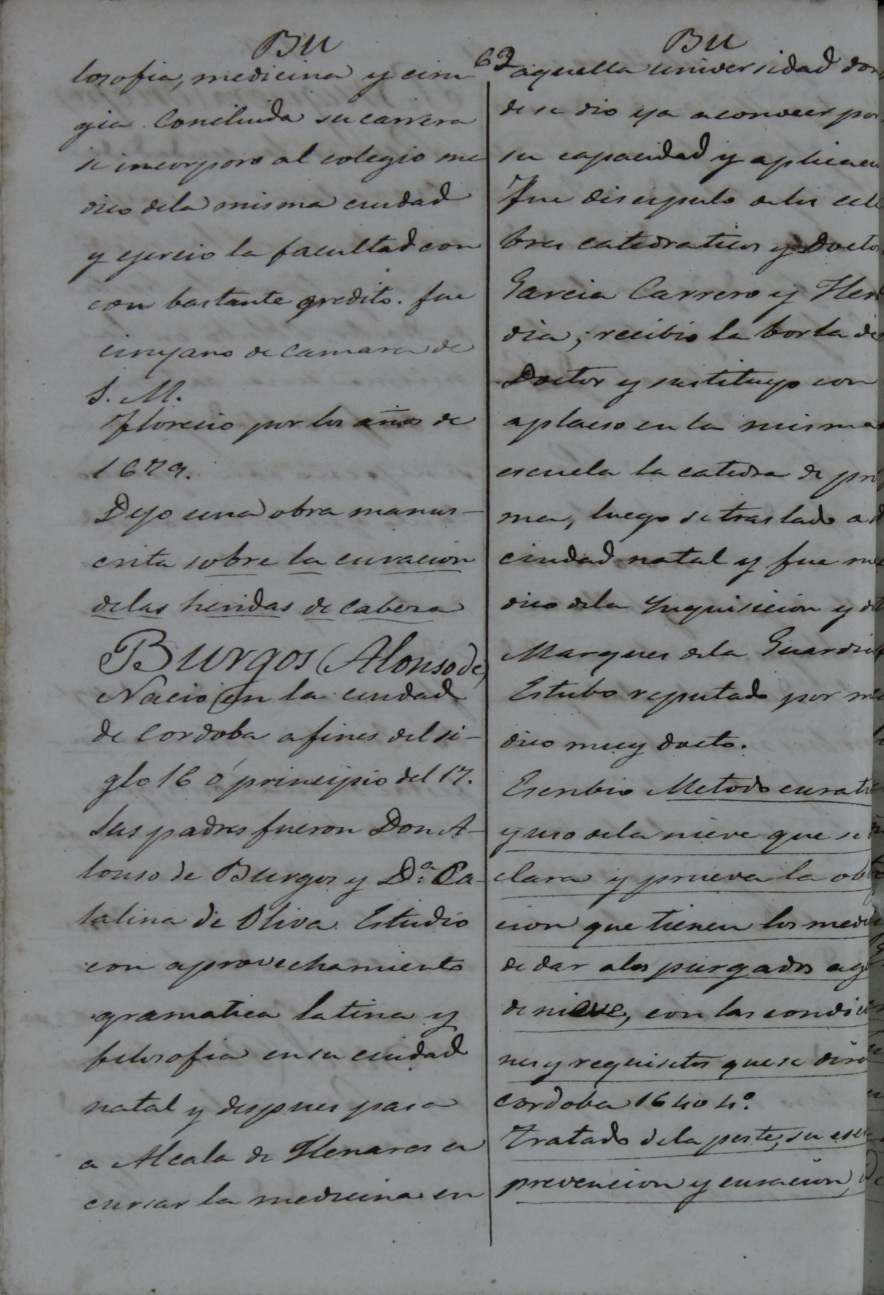 Bu
losofia, medicina y ciru
gia. Concluida su carrera
se incorporo al colegio me
dico dela misma ciudad
y ejercio la facultad con
con bastante credito. fue
cirujano de camara de
S. M.
Florecio por los años de
1679.
Dejo una obra manus-
crita sobre la curacion
delas heridas de cabeza
Burgos (Alonso de)
Nacio en la ciudad
de Cordoba a fines del si-
glo 16 ó principio del 17.
Sus padres fueron Don A-
lonso de Burgos y D.ª Ca-
talina de Oliva. Estudio
con aprovechamiento
gramatica latina y
filosofia en su ciudad
natal y despues paso
a Alcala de Henares a
cursar la medicina en
62
Bu
aquella universidad don
de se dio ya a conocer por
su capacidad y aplicac
Fue discipulo delos cele
bres catedraticos y Docto
Garcia Carrero y Here
dia; recibio la borla de
Doctor y sustituyo con
aplauso en la misma
escuela la catedra de pri
ma, luego se traslado a
ciudad natal y fue me
dico dela Inquisicion y d
Marques dela Guardia
Estubo reputado por me
dico muy docto.
Escribio Metodo curati
y uso dela nieve que se
clara y prueva la obl
cion que tienen los medi
de dar a los purgados ag
de nieve, con las condicio
nes y requisitos que se dira
Cordoba 1640 4.º
Tratado de la peste, su
prevencion y curacion,